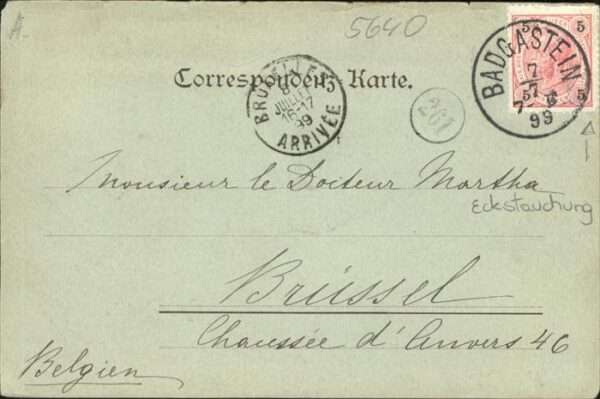 5640
5 5
5 5
BADGASTEIN
7
7
99
Correspondenz-Karte.
BRUXELLES
8
JUILLET
16-17
99
ARRIVÉE
261
Monsieur le Docteur Martha
Eckstauchung
Brüssel
Chaussée d'Anvers 46
Belgien